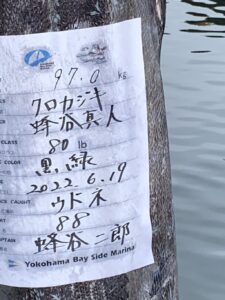 97.0 kg
クロカジキ
蜂谷真人
CLASS 80 lb
COLOR 黒,緑
2022.6.19
CAUGHT ウドネ
88
蜂谷二郎
Yokohama Bay Side Marina